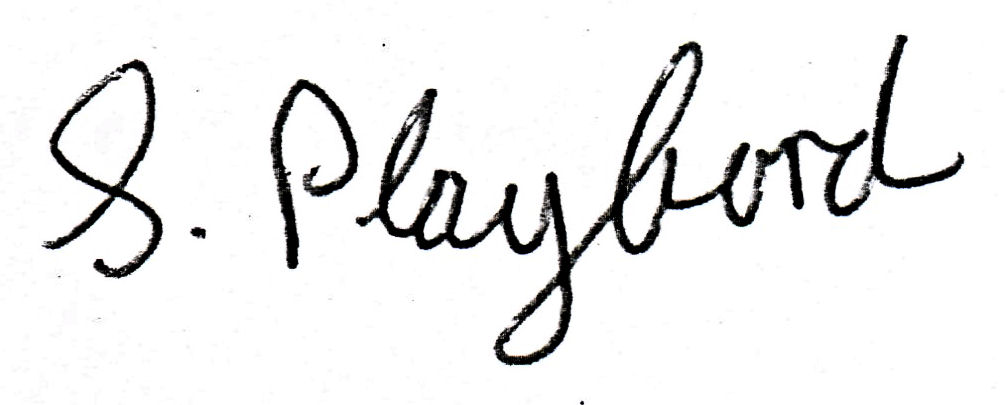 S. Playbord